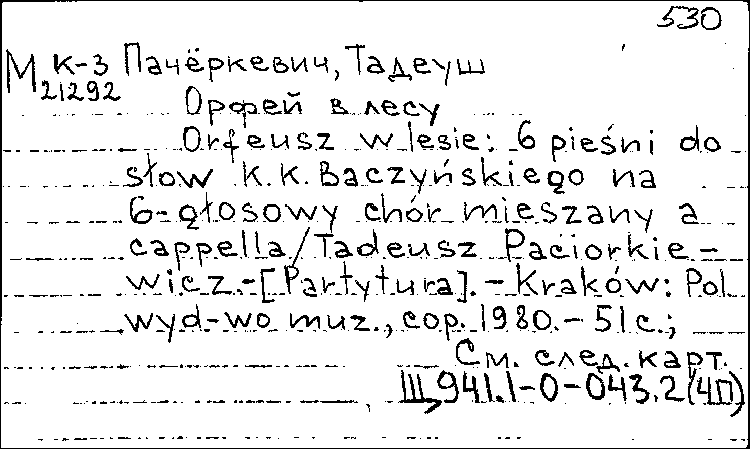 530
М К-3 Пачёркевич, Тадеуш
21292
Орфей в лесу
Orfeusz w lesie: 6 pieśni do
słow K.K. Baczyńskiego na
6-głosowy chór mieszany a
cappella/Tadeusz Paciorkie-
wicz.-[Partytura].-Kraków: Pol.
wyd-wo muz., cop. 1980.- 51 c.;
См. след. карт.
Ш,941.1-0-043.2(4П)